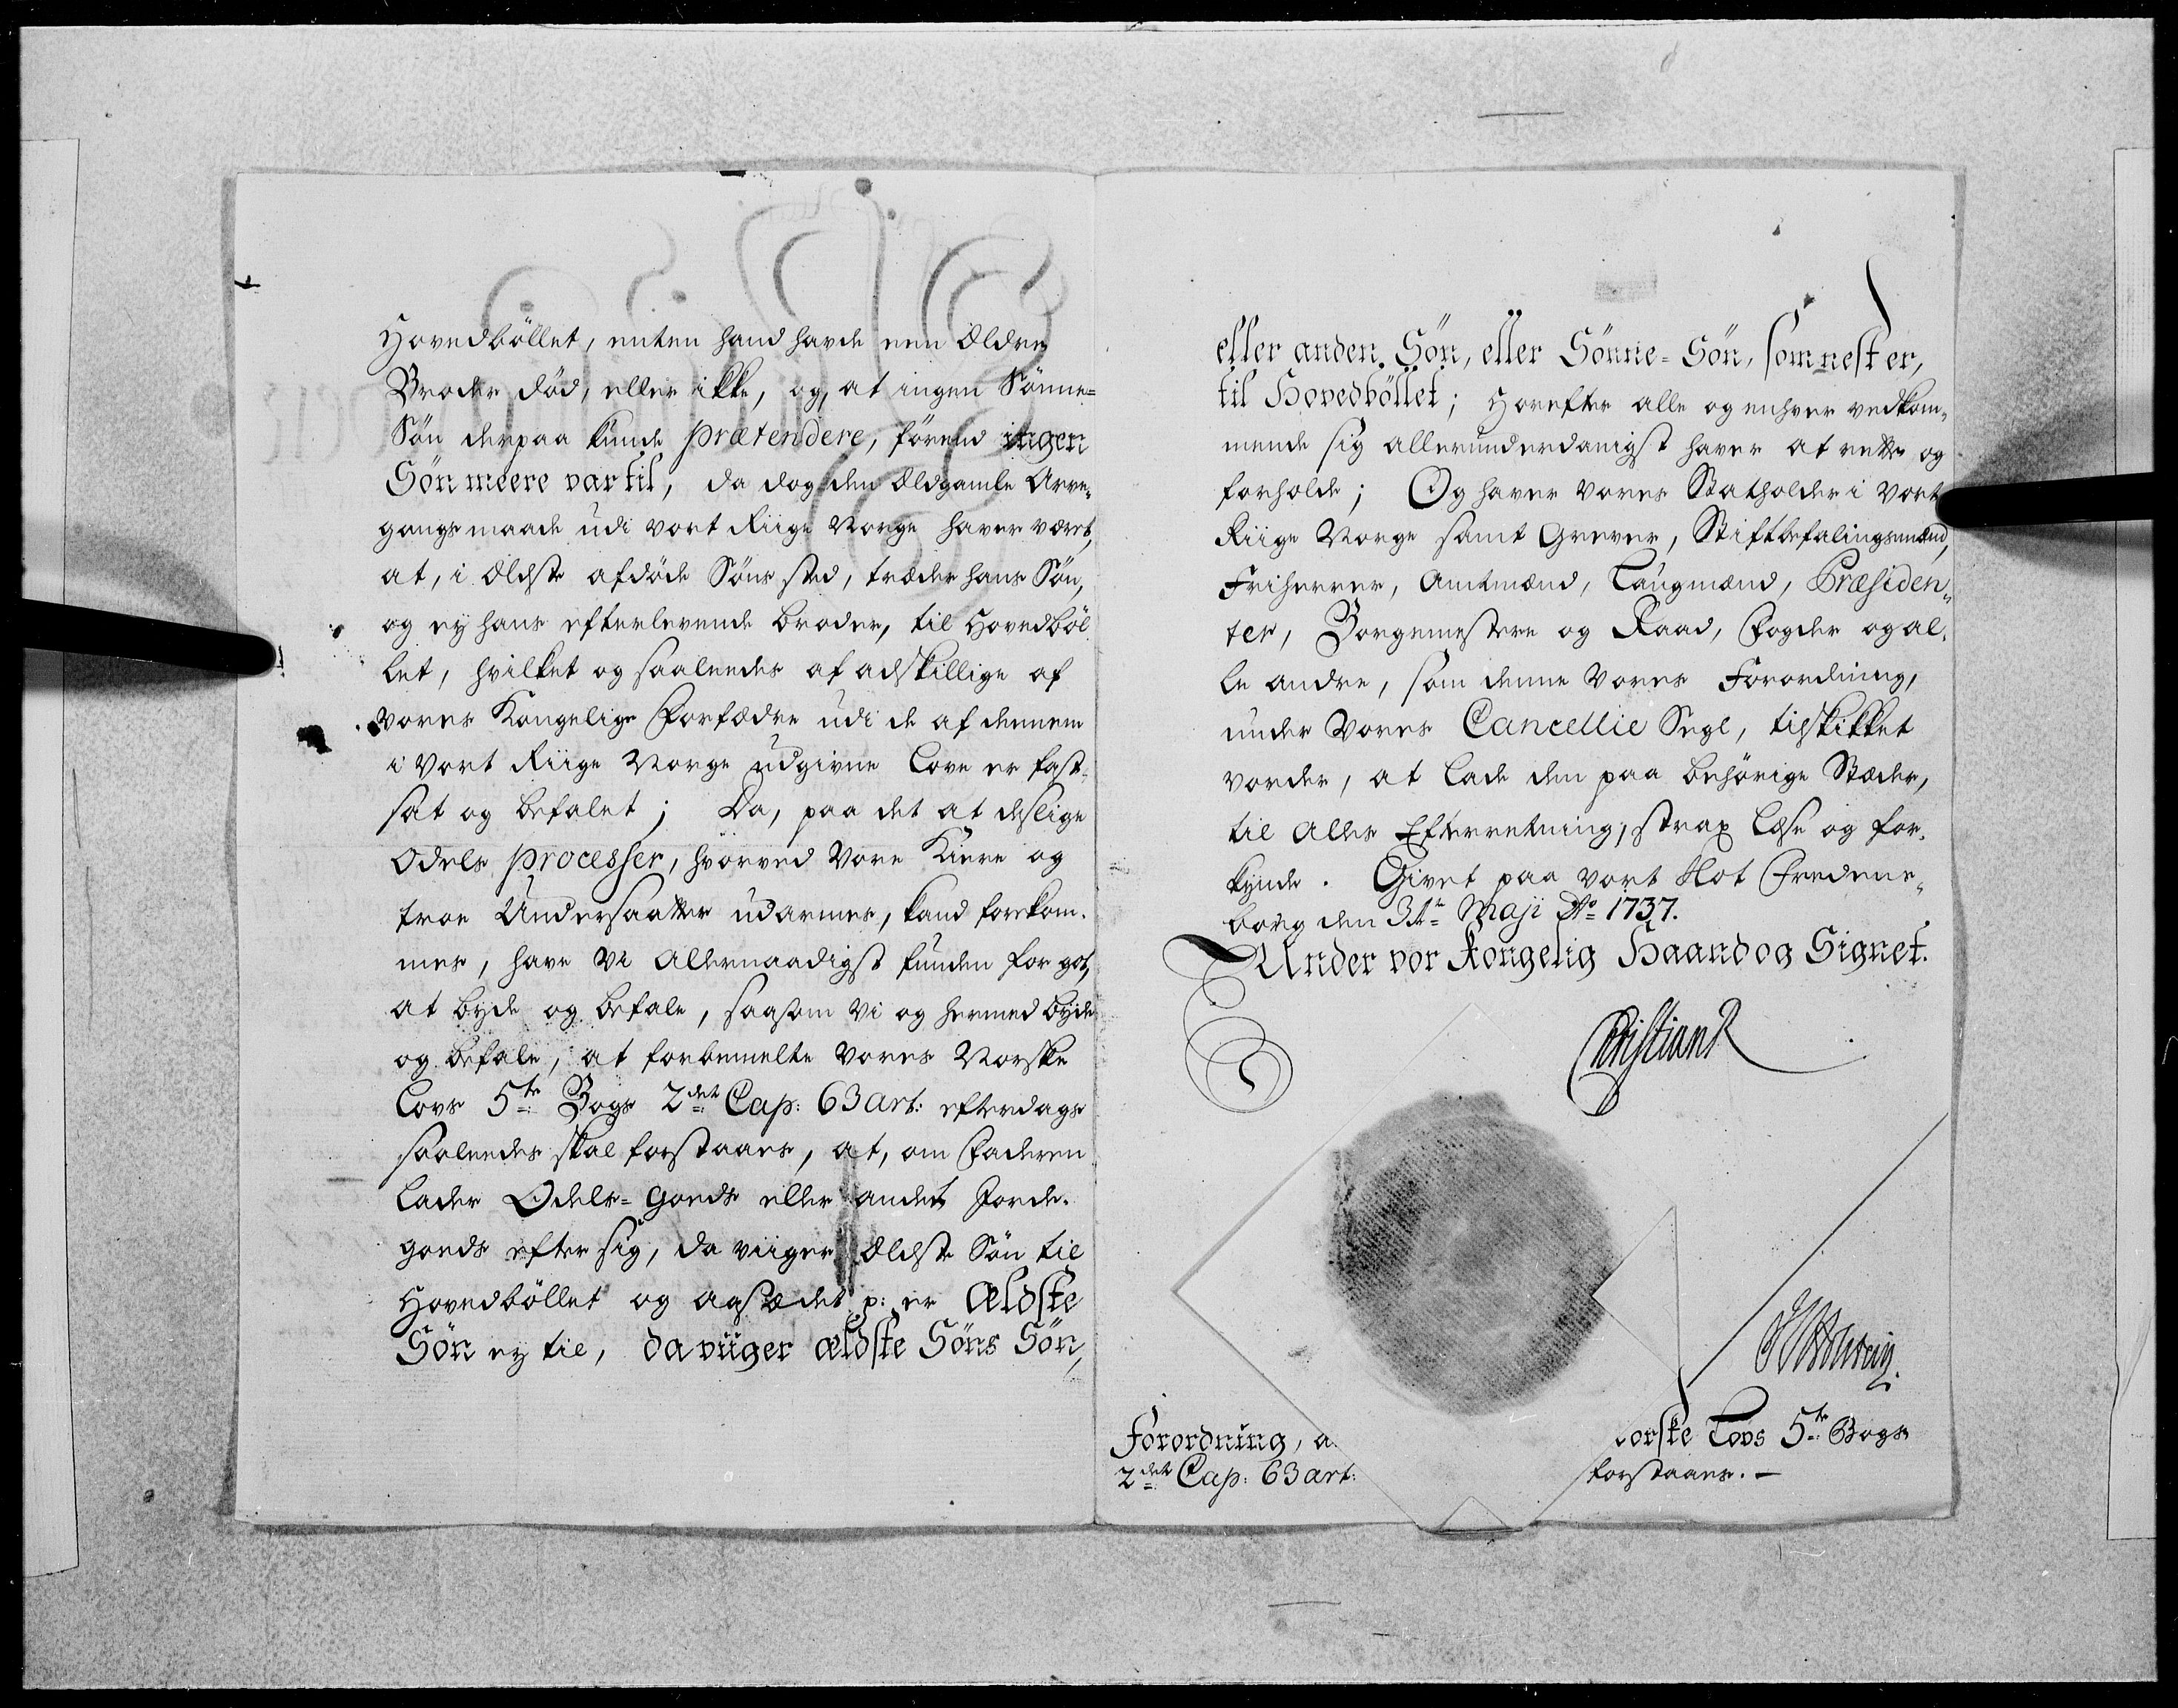 Hovedböllet, enten hand havde een Ældre
Broder död, eller ikke, og, at ingen Sönne=
Søn derpaa kunde prætendere, förend ingen
Søn meere var til, da dog den Ældgamle Arve-
gangs maade udi vort Riige Norge haver været,
at, i Ældste afdöde Søns sted, træder hans Søn,
og ey hans efterlevende broder, til Hovedböl-
let, hvilket og saaleedes af adskillige af
Vores Kongelige Forfædre udi de af dennem
i Vort Riige Norge udgivne Love er fast-
sat og befalet; Da, paa det at deslige
Odels processer, hvorved Vore Kiere og
troe Undersaatter udarmes, kand forekom-
mes, have Vi Allernaadigst funden for got,
at byde og befale, saasom Vi og hermed byde
og befale, at forbemelte Vores Norske
Lovs 5te Bogs 2det Cap: 63 art: efterdags
saaleedes skal forstaaes, at, om Faderen
lader Odels=Goeds eller andet Jorde-
goeds efter sig, da viiger Ældste Søn til
Hovedböllet og Aasædet p: er Ældste
Søn ey til, da viiger ældste Søns Søn,
eller anden Søn, eller Sönne=Søn, som nest er,
til Hovedböllet; Horefter alle og enhver vedkom-
mende sig allerunderdanigst haver at rette og
forholde; Og haver Vores Statholder i Vort
Riige Norge samt Grever, Stiftbefalingsmænd,
Friherrer, Amtmænd, Laugmænd, Præsiden-
ter, Borgemestere og Raad, Fogder og al-
le andre, som denne Vores Forordning,
under Vores Cancellie Segl, tilskikket
vorder, at lade den paa behörige Stæder,
til Alles Efterretning, strax læse og for-
kynde. Givet paa Vort Slot Fredens-
borg den 31te Maji Ao 1737.
Under vor Kongelig Haand og Signet.
Christian R
JLHolstein.
Forordning, a
orske Lovs 5te Bogs
2det Cap: 63 art:
forstaaes.